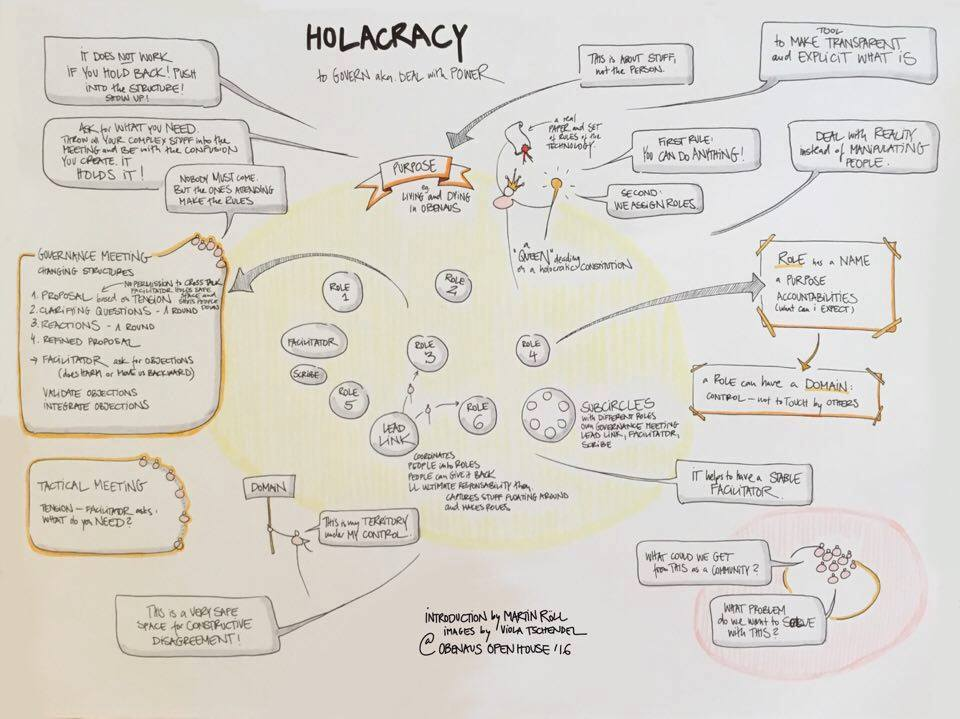 HOLACRACY
to GOVERN aka. DEAL with POWER
IT DOES NOT WORK
IF YOU HOLD BACK! PUSH
INTO the STRUCTURE!
SHOW UP!
ASK for WHAT YOU NEED.
THROW all YOUR COMPLEX STUFF into the
MEETING and BE with the CONFUSION
YOU CREATE. IT
HOLDS IT!
NOBODY MUST COME.
BUT the ONES ATTENDING
MAKE the RULES
THIS IS ABOUT STUFF,
not the PERSON.
TOOL
to MAKE TRANSPARENT
and EXPLICIT WHAT IS
a real
PAPER and SET
of RULES of the
TECHNOLOGY.
FIRST RULE:
YOU CAN DO ANYTHING!
SECOND:
WE ASSIGN ROLES.
DEAL with REALITY
instead of MANIPULATING
PEOPLE.
PURPOSE
eg.
LIVING and DYING
in OBENAUS
a
"QUEEN" deciding
on a holocracy CONSTITUTION
GOVERNANCE MEETING
CHANGING STRUCTURES
NO PERMISSION to CROSS TALK
FACILITATOR HOLDS SAFE
SPACE and
SHUTS PEOPLE
DOWN
1. PROPOSAL based on TENSION
2. CLARIFYING QUESTIONS - 1 ROUND
3. REACTIONS - 1 ROUND
4. REFINED PROPOSAL
→ FACILITATOR ask for OBJECTIONS
(does HARM or MOVE US BACKWARD)
VALIDATE OBJECTIONS
INTEGRATE OBJECTIONS
ROLE
1
ROLE
2
FACILITATOR
SCRIBE
ROLE
3
ROLE
4
ROLE
5
LEAD
LINK
ROLE
6
COORDINATES
PEOPLE into ROLES
PEOPLE can GIVE it BACK
LL ULTIMATE RESPONSABILITY then.
CAPTURES STUFF FLOATING AROUND
and MAKES ROLES.
SUBCIRCLES
with DIFFERENT ROLES
OWN GOVERNANCE MEETING
LEAD LINK, FACILITATOR,
SCRIBE
ROLE has a NAME
a PURPOSE
ACCOUNTABILITIES
(what can i EXPECT)
a ROLE can have a DOMAIN:
CONTROL - not to TOUCH by OTHERS
IT HELPS to have a STABLE
FACILITATOR.
TACTICAL MEETING
TENSION - FACILITATOR asks:
WHAT do you NEED?
DOMAIN
THIS is my TERRITORY
under MY CONTROL
THIS IS A VERY SAFE
SPACE for CONSTRUCTIVE
DISAGREEMENT!
WHAT COULD WE GET
from THIS as a COMMUNITY?
WHAT PROBLEM
do we want to SOLVE
with THIS?
INTRODUCTION by MARTIN RÖLL
images by VIOLA TSCHENDEL
@ OBENAUS OPEN HOUSE '16